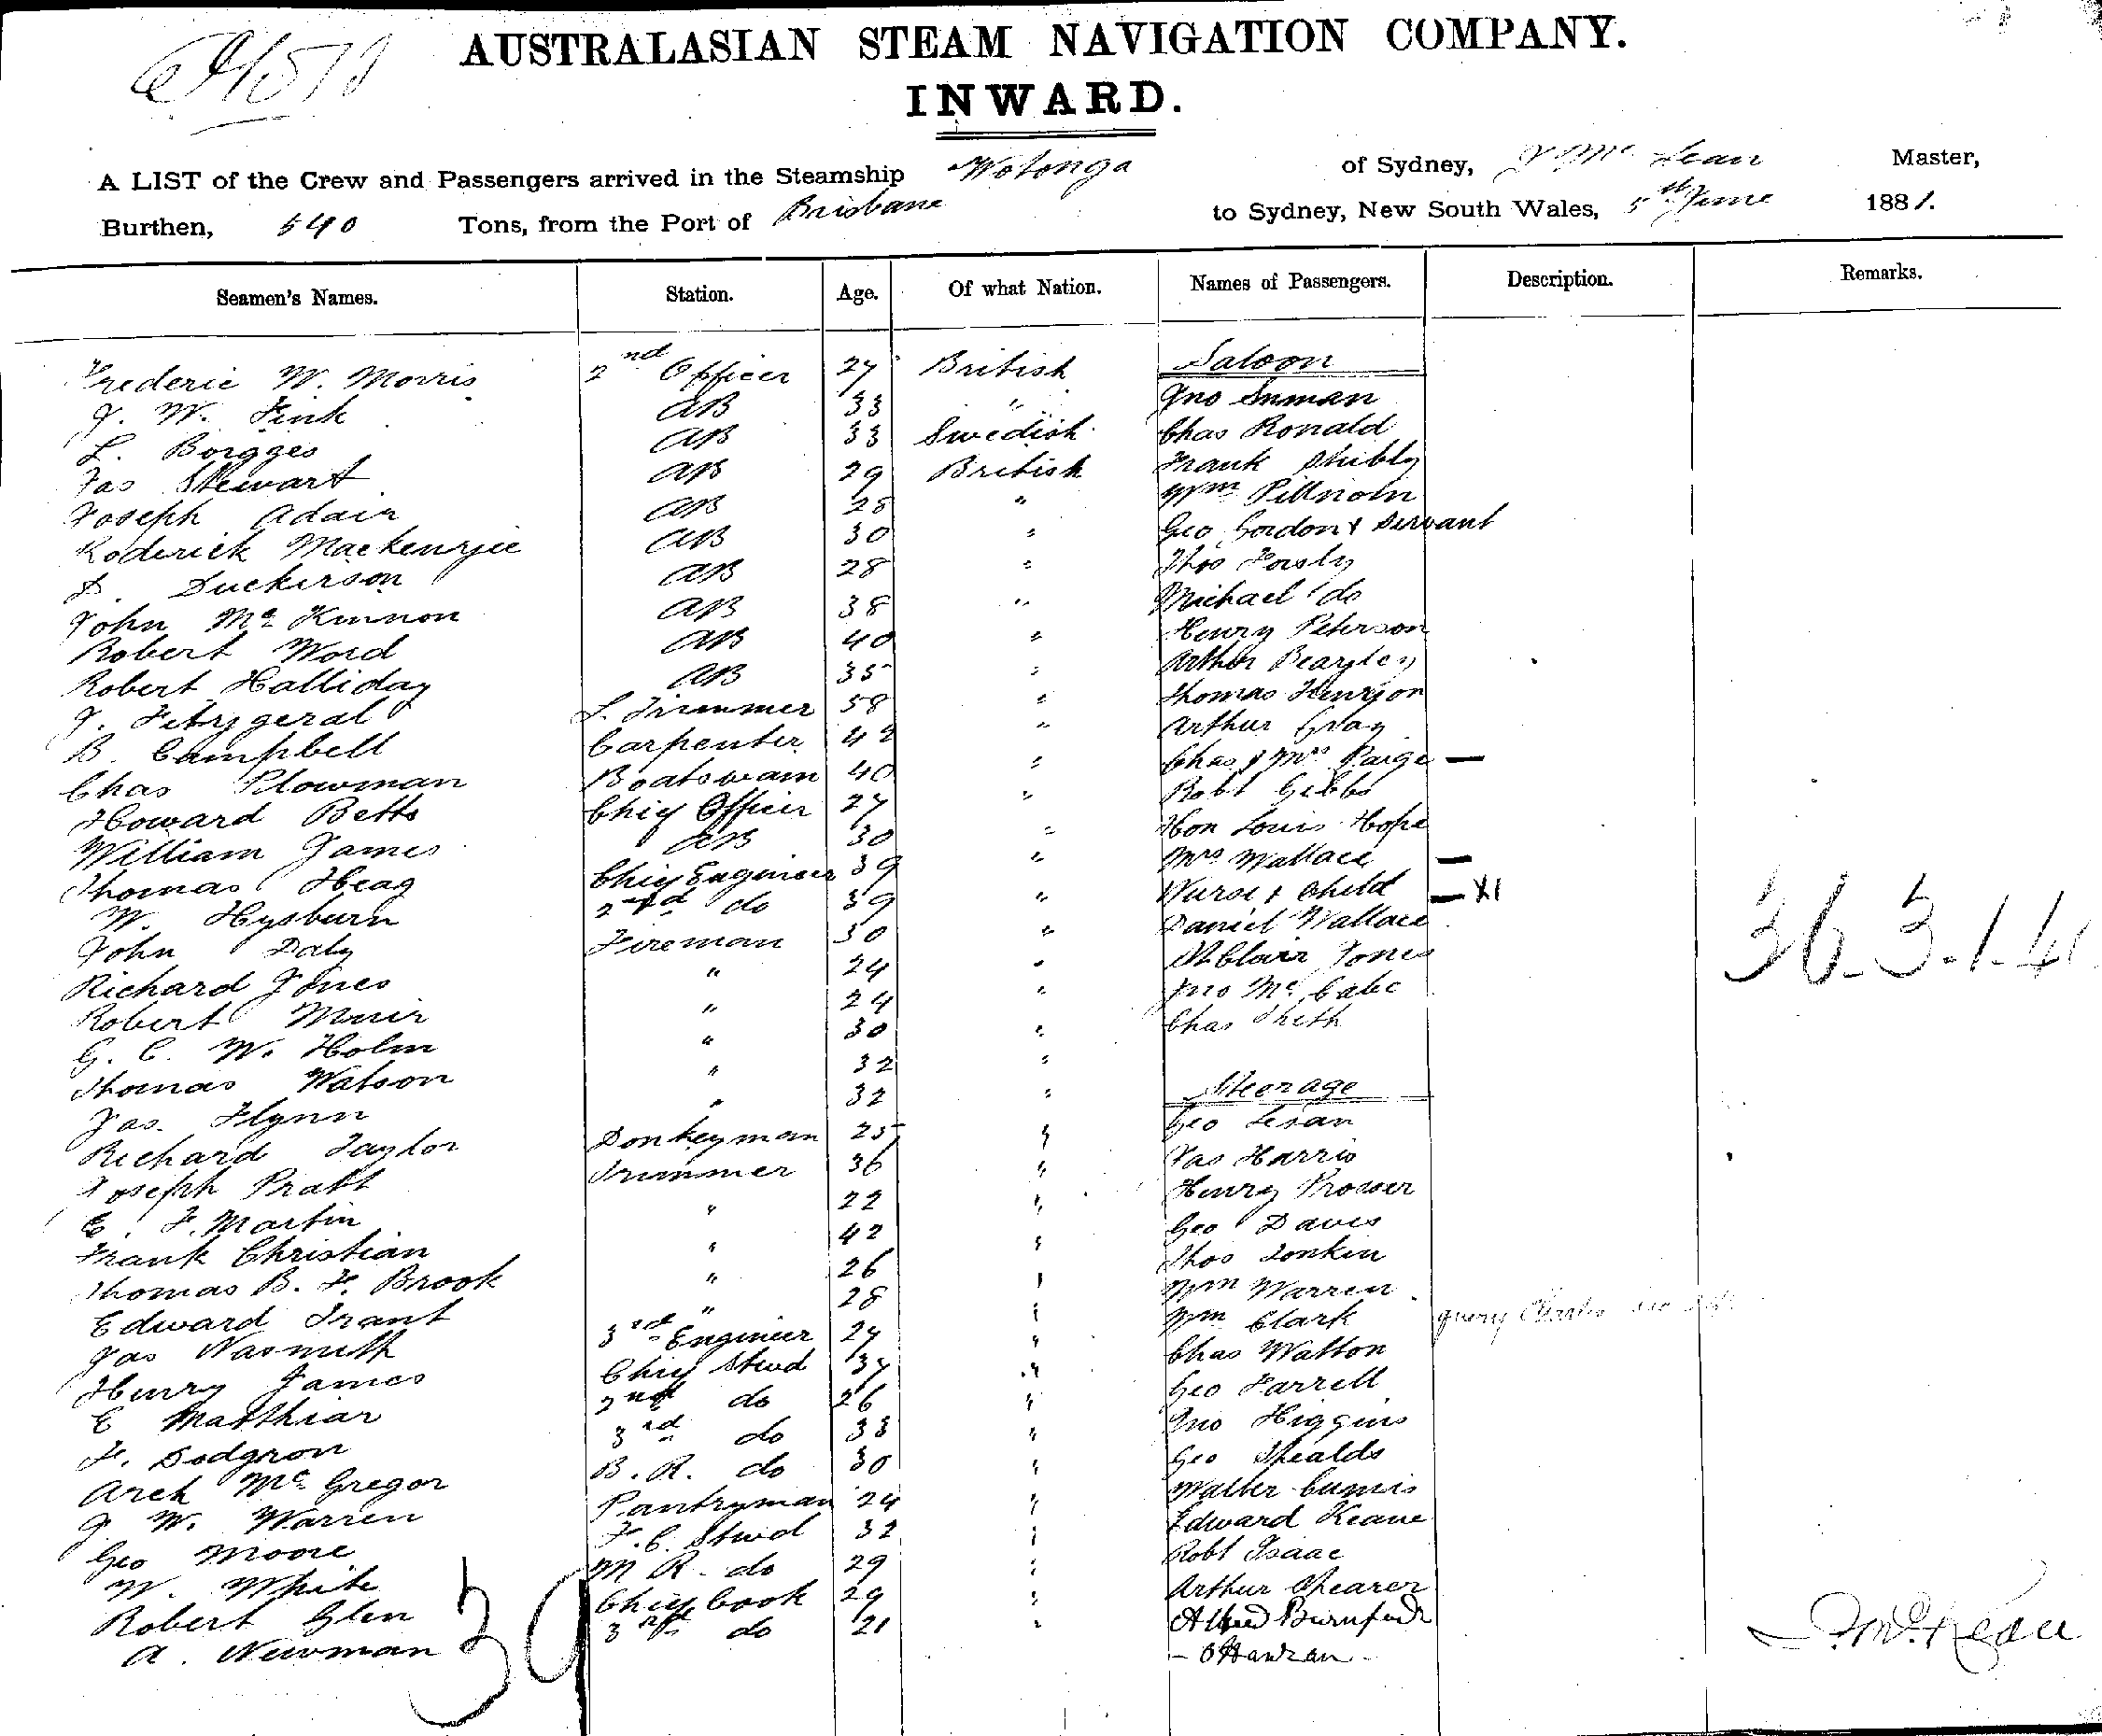 AUSTRALASIAN STEAM NAVIGATION COMPANY.
INWARD.
A LIST of the Crew and Passengers arrived in the Steamship Wotonga of Sydney, J McLean Master,
Burthen, 540 Tons, from the Port of Brisbane to Sydney, New South Wales, 5th June 1881.
Seamen's Names. Station. Age. Of what Nation. Names of Passengers. Description. Remarks.
Frederic W. Morris 2nd Officer 27 British Saloon
J. W. Fink AB 33 " Jno Inman
L. Borgges AB 33 Swedish Chas Ronald
Jas Stewart AB 29 British Frank
Joseph Adair AB 28 " Wm
Roderick Mackenzie AB 30 " Geo Gordon & Servant
D. Duckerson AB 28 " Thos
John McKinnon AB 38 " Michael do
Robert Word AB 40 " Henry Peterson
Robert Halliday AB 35 " Arthur Beazley
J. Fitzgeral L. Trimmer 58 " Thomas
B. Campbell Carpenter 42 " Arthur Gray
Chas Plowman Boatswain 40 " Chas & Mrs Paige —
Howard Betts Chief Officer 27 " Robt Gibbs
William James AB 30 " Hon Louis Hope
Thomas Heag Chief Engineer 39 " Mrs Wallace —
W. Hysburn 2nd do 39 " Nurse & Child — X1
John Daly Fireman 30 " Daniel Wallace
Richard Jones " 24 " Jones
Robert Muir " 24 " Jno McCabe
G. C. W. Holm " 30 " Chas
Thomas Watson " 32 "
Jas. Flynn " 32 " Steerage
Richard Taylor Donkeyman 25 " Geo
Joseph Pratt Trimmer 36 " Jas Harris
E. F. Martin " 22 " Henry Prosser
Frank Christian " 42 " Geo Davis
Thomas B. F. Brook " 26 " Thos Tonkin
Edward Trant " 28 " Wm Warren
Jas Nasmith 3rd Engineer 27 " Wm Clark query Charles
Henry James Chief Stwd 37 " Chas Watton
E Matthiar 2nd do 26 " Geo Farrell
F. Dodgson 3rd do 33 " Jno Higgins
Arch McGregor B. R. do 30 " Geo
J W. Warren Pantryman 24 " Walter
Geo Moore F. C. Stwd 32 " Edward Keane
W. White M R. do 29 " Robt Isaac
Robert Glen Chief Cook 29 " Arthur Shearer
A. Newman 3rd do 21 " Alfred
39
36. 3. 1. 41
J. McLean